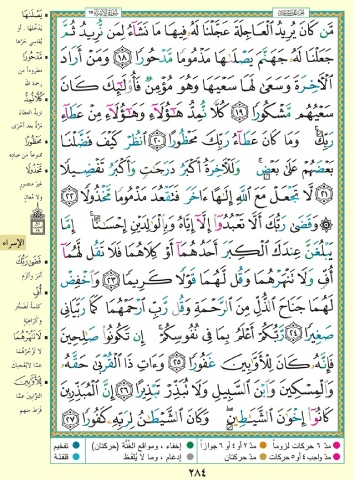 سورة الإسراء ١٧
مَّن كَانَ يُرِيدُ الْعَاجِلَةَ عَجَّلْنَا لَهُ فِيهَا مَا نَشَاءُ لِمَن نُّرِيدُ ثُمَّ
جَعَلْنَا لَهُ جَهَنَّمَ يَصْلَاهَا مَذْمُومًا مَّدْحُورًا ١٨ وَمَنْ أَرَادَ
الْآخِرَةَ وَسَعَىٰ لَهَا سَعْيَهَا وَهُوَ مُؤْمِنٌ فَأُولَٰئِكَ كَانَ
سَعْيُهُم مَّشْكُورًا ١٩ كُلًّا نُّمِدُّ هَٰؤُلَاءِ وَهَٰؤُلَاءِ مِنْ عَطَاءِ
رَبِّكَ وَمَا كَانَ عَطَاءُ رَبِّكَ مَحْظُورًا ٢٠ انظُرْ كَيْفَ فَضَّلْنَا
بَعْضَهُمْ عَلَىٰ بَعْضٍ وَلَلْآخِرَةُ أَكْبَرُ دَرَجَاتٍ وَأَكْبَرُ تَفْضِيلًا
٢١ لَّا تَجْعَلْ مَعَ اللَّهِ إِلَٰهًا آخَرَ فَتَقْعُدَ مَذْمُومًا مَّخْذُولًا ٢٢
۞ وَقَضَىٰ رَبُّكَ أَلَّا تَعْبُدُوا إِلَّا إِيَّاهُ وَبِالْوَالِدَيْنِ إِحْسَانًا إِمَّا
يَبْلُغَنَّ عِندَكَ الْكِبَرَ أَحَدُهُمَا أَوْ كِلَاهُمَا فَلَا تَقُل لَّهُمَا
أُفٍّ وَلَا تَنْهَرْهُمَا وَقُل لَّهُمَا قَوْلًا كَرِيمًا ٢٣ وَاخْفِضْ
لَهُمَا جَنَاحَ الذُّلِّ مِنَ الرَّحْمَةِ وَقُل رَّبِّ ارْحَمْهُمَا كَمَا رَبَّيَانِي
صَغِيرًا ٢٤ رَّبُّكُمْ أَعْلَمُ بِمَا فِي نُفُوسِكُمْ إِن تَكُونُوا صَالِحِينَ
فَإِنَّهُ كَانَ لِلْأَوَّابِينَ غَفُورًا ٢٥ وَآتِ ذَا الْقُرْبَىٰ حَقَّهُ
وَالْمِسْكِينَ وَابْنَ السَّبِيلِ وَلَا تُبَذِّرْ تَبْذِيرًا ٢٦ إِنَّ الْمُبَذِّرِينَ
كَانُوا إِخْوَانَ الشَّيَاطِينِ وَكَانَ الشَّيْطَانُ لِرَبِّهِ كَفُورًا ٢٧
يَصْلَاهَا
يدخلها، أو
يقاسي حرّها
مَّدْحُورًا
مطروداً من
رحمة الله
كُلًّا نُّمِدُّ
نزيد العطاء
مرّة بعد أخرى
مَحْظُورًا
ممنوعاً من عباده
مَّخْذُولًا
غير منصور
ولا معان
الإسراء
قَضَىٰ رَبُّكَ
أمر وألزم
أُفٍّ
كلمة تضجّر
وكراهية
لَا تَنْهَرْهُمَا
لا تزجرهما
عمّا لا يعجبك
لِلْأَوَّابِينَ
التوّابين عمّا
فرط منهم
مدّ ٦ حركات لزوماً مدّ ٢ أو ٤ أو ٦ جوازاً إخفاء، ومواقع الغُنَّة (حركتان) تفخيم
مدّ واجب ٤ أو ٥ حركات مدّ حركتان إدغام، وما لا يُلفَظ قلقلة
٢٨٤